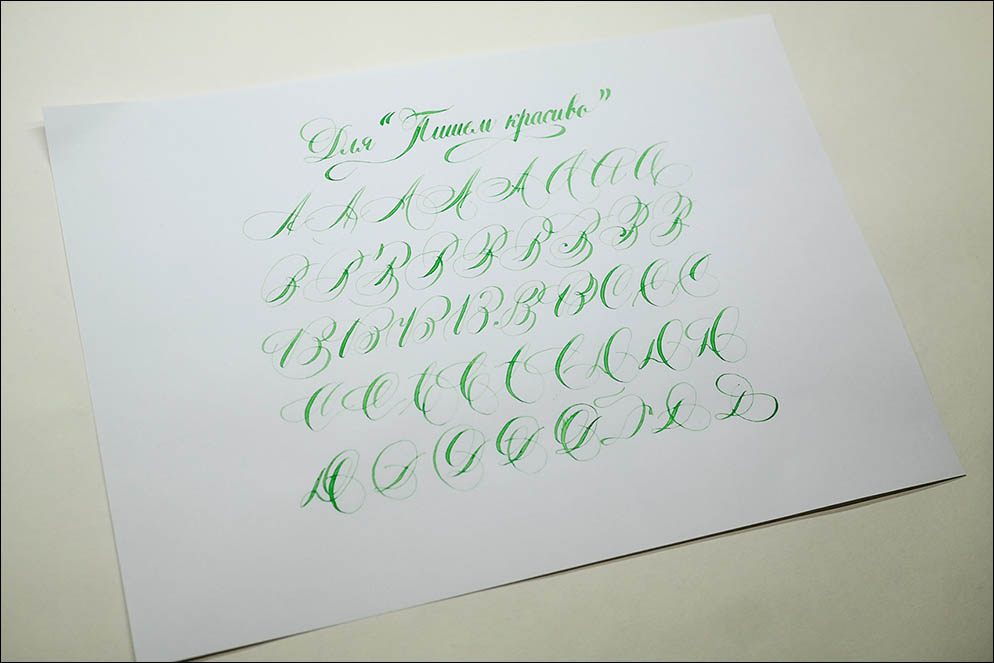 Для “Пишем красиво”
A A A A A A A A
B B B B B B B B B
B B B B B B C C C
C C C C C C D D D
D D D D D D D